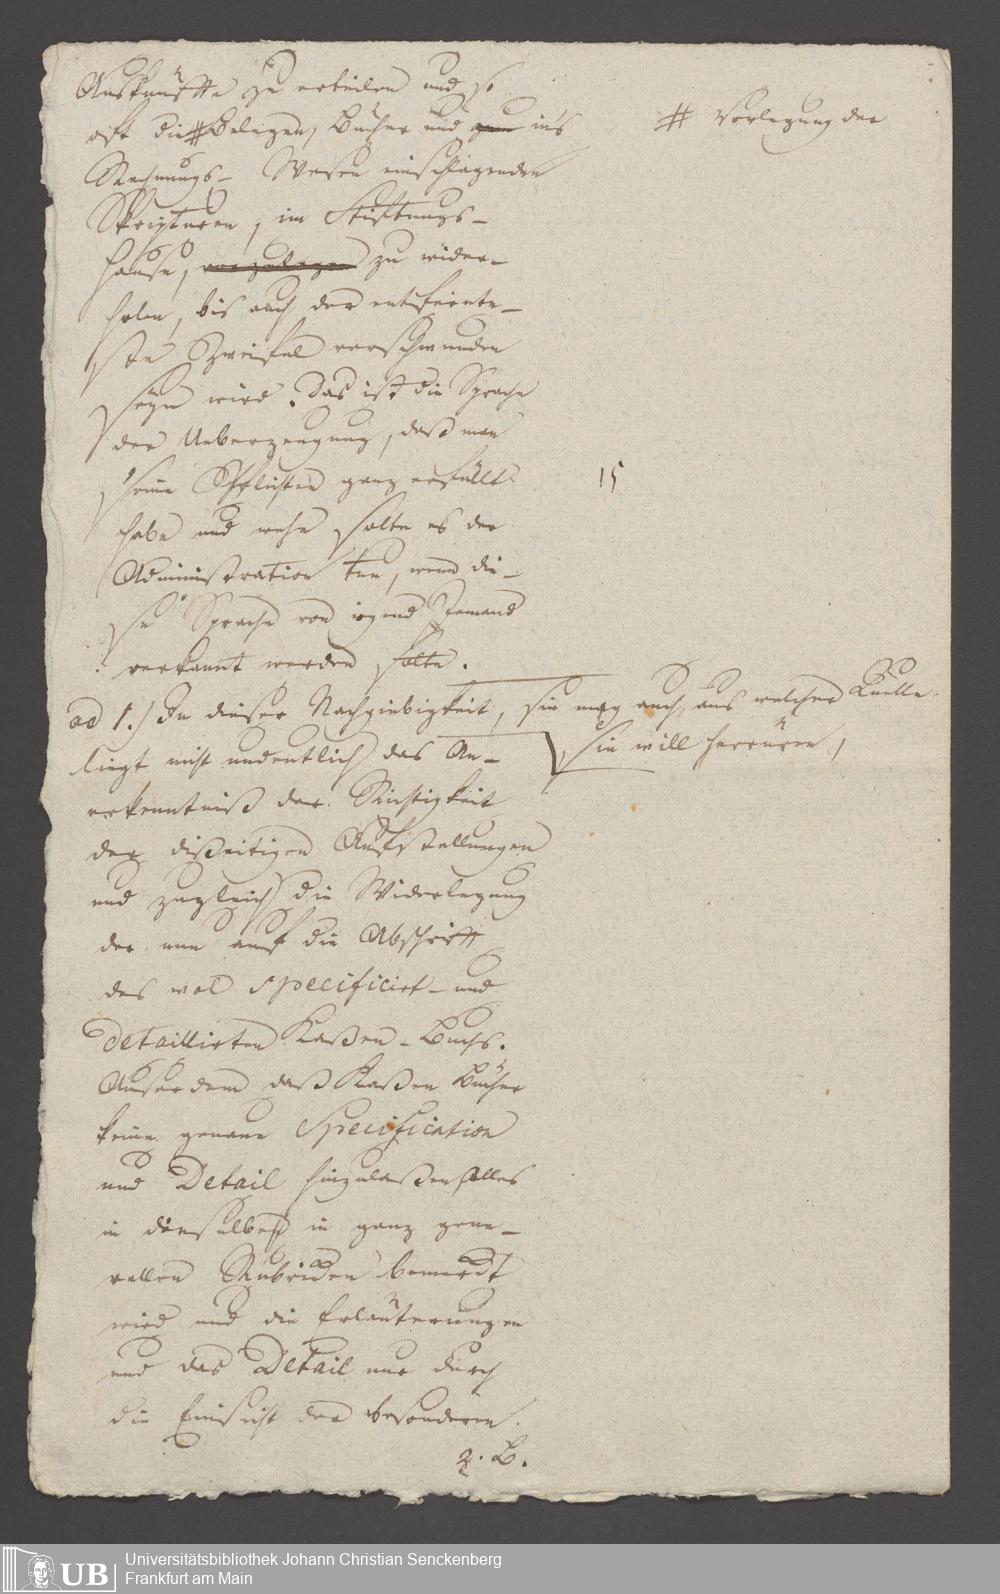 Auskünfte zu erteilen und so
oft die # Belegen, Bücher und zum ins
# Vorlegung der
Rechnungs- Wesen einschlagenden
Skripturen, im Stiftungs-
hause, vorzulegen zu wider-
holen, bis auch der entfernte-
ste Zweifel verschwunden
seyn wird. Das ist die Sprache
der Ueberzeugung, daß man
seine Pflichten ganz erfüllt
15
habe und wehe solte es der
Administration tun, wenn die-
se Sprache von irgend Jemand
verkannt werden solte.
ad 1.) In dieser Nachgiebigkeit, sie mag auch, aus welcher Quelle
sie will herrüren,
liegt nicht undeutlich das An-
erkenntniß der Richtigkeit
der disseitigen Aufstellungen
und zugleich die Widerlegung
der nun auf die Abschrift
des wol specificirt- und
detaillirten Kaßen-Buchs.
Auserdem daß Kaßen Bücher
keine genaue Specification
und Detail hinzulaßen, alles
in denselben in ganz gene-
rellen Rubriken bemerckt
wird und die Erläuterungen
und das Detail nur durch
die Einsicht der besonderen
z. B.
UB
Universitätsbibliothek Johann Christian Senckenberg
Frankfurt am Main